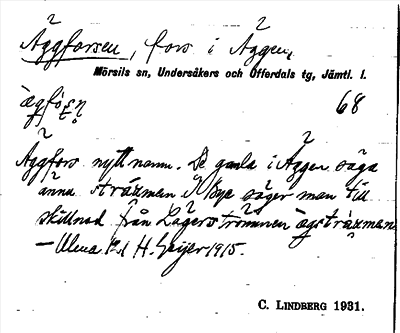 Äggforsen, fors i Äggen,
Mörsils sn, Undersåkers och Offerdals tg, Jämtl. l.
68
Äggfors nytt namn. De gamla i Äggen säga
ännu strǟuman. I Bye säger man till
skillnad från Lagerströmmen ägstrǟuman
— H. Geijer 1915.
C. LINDBERG 1931.